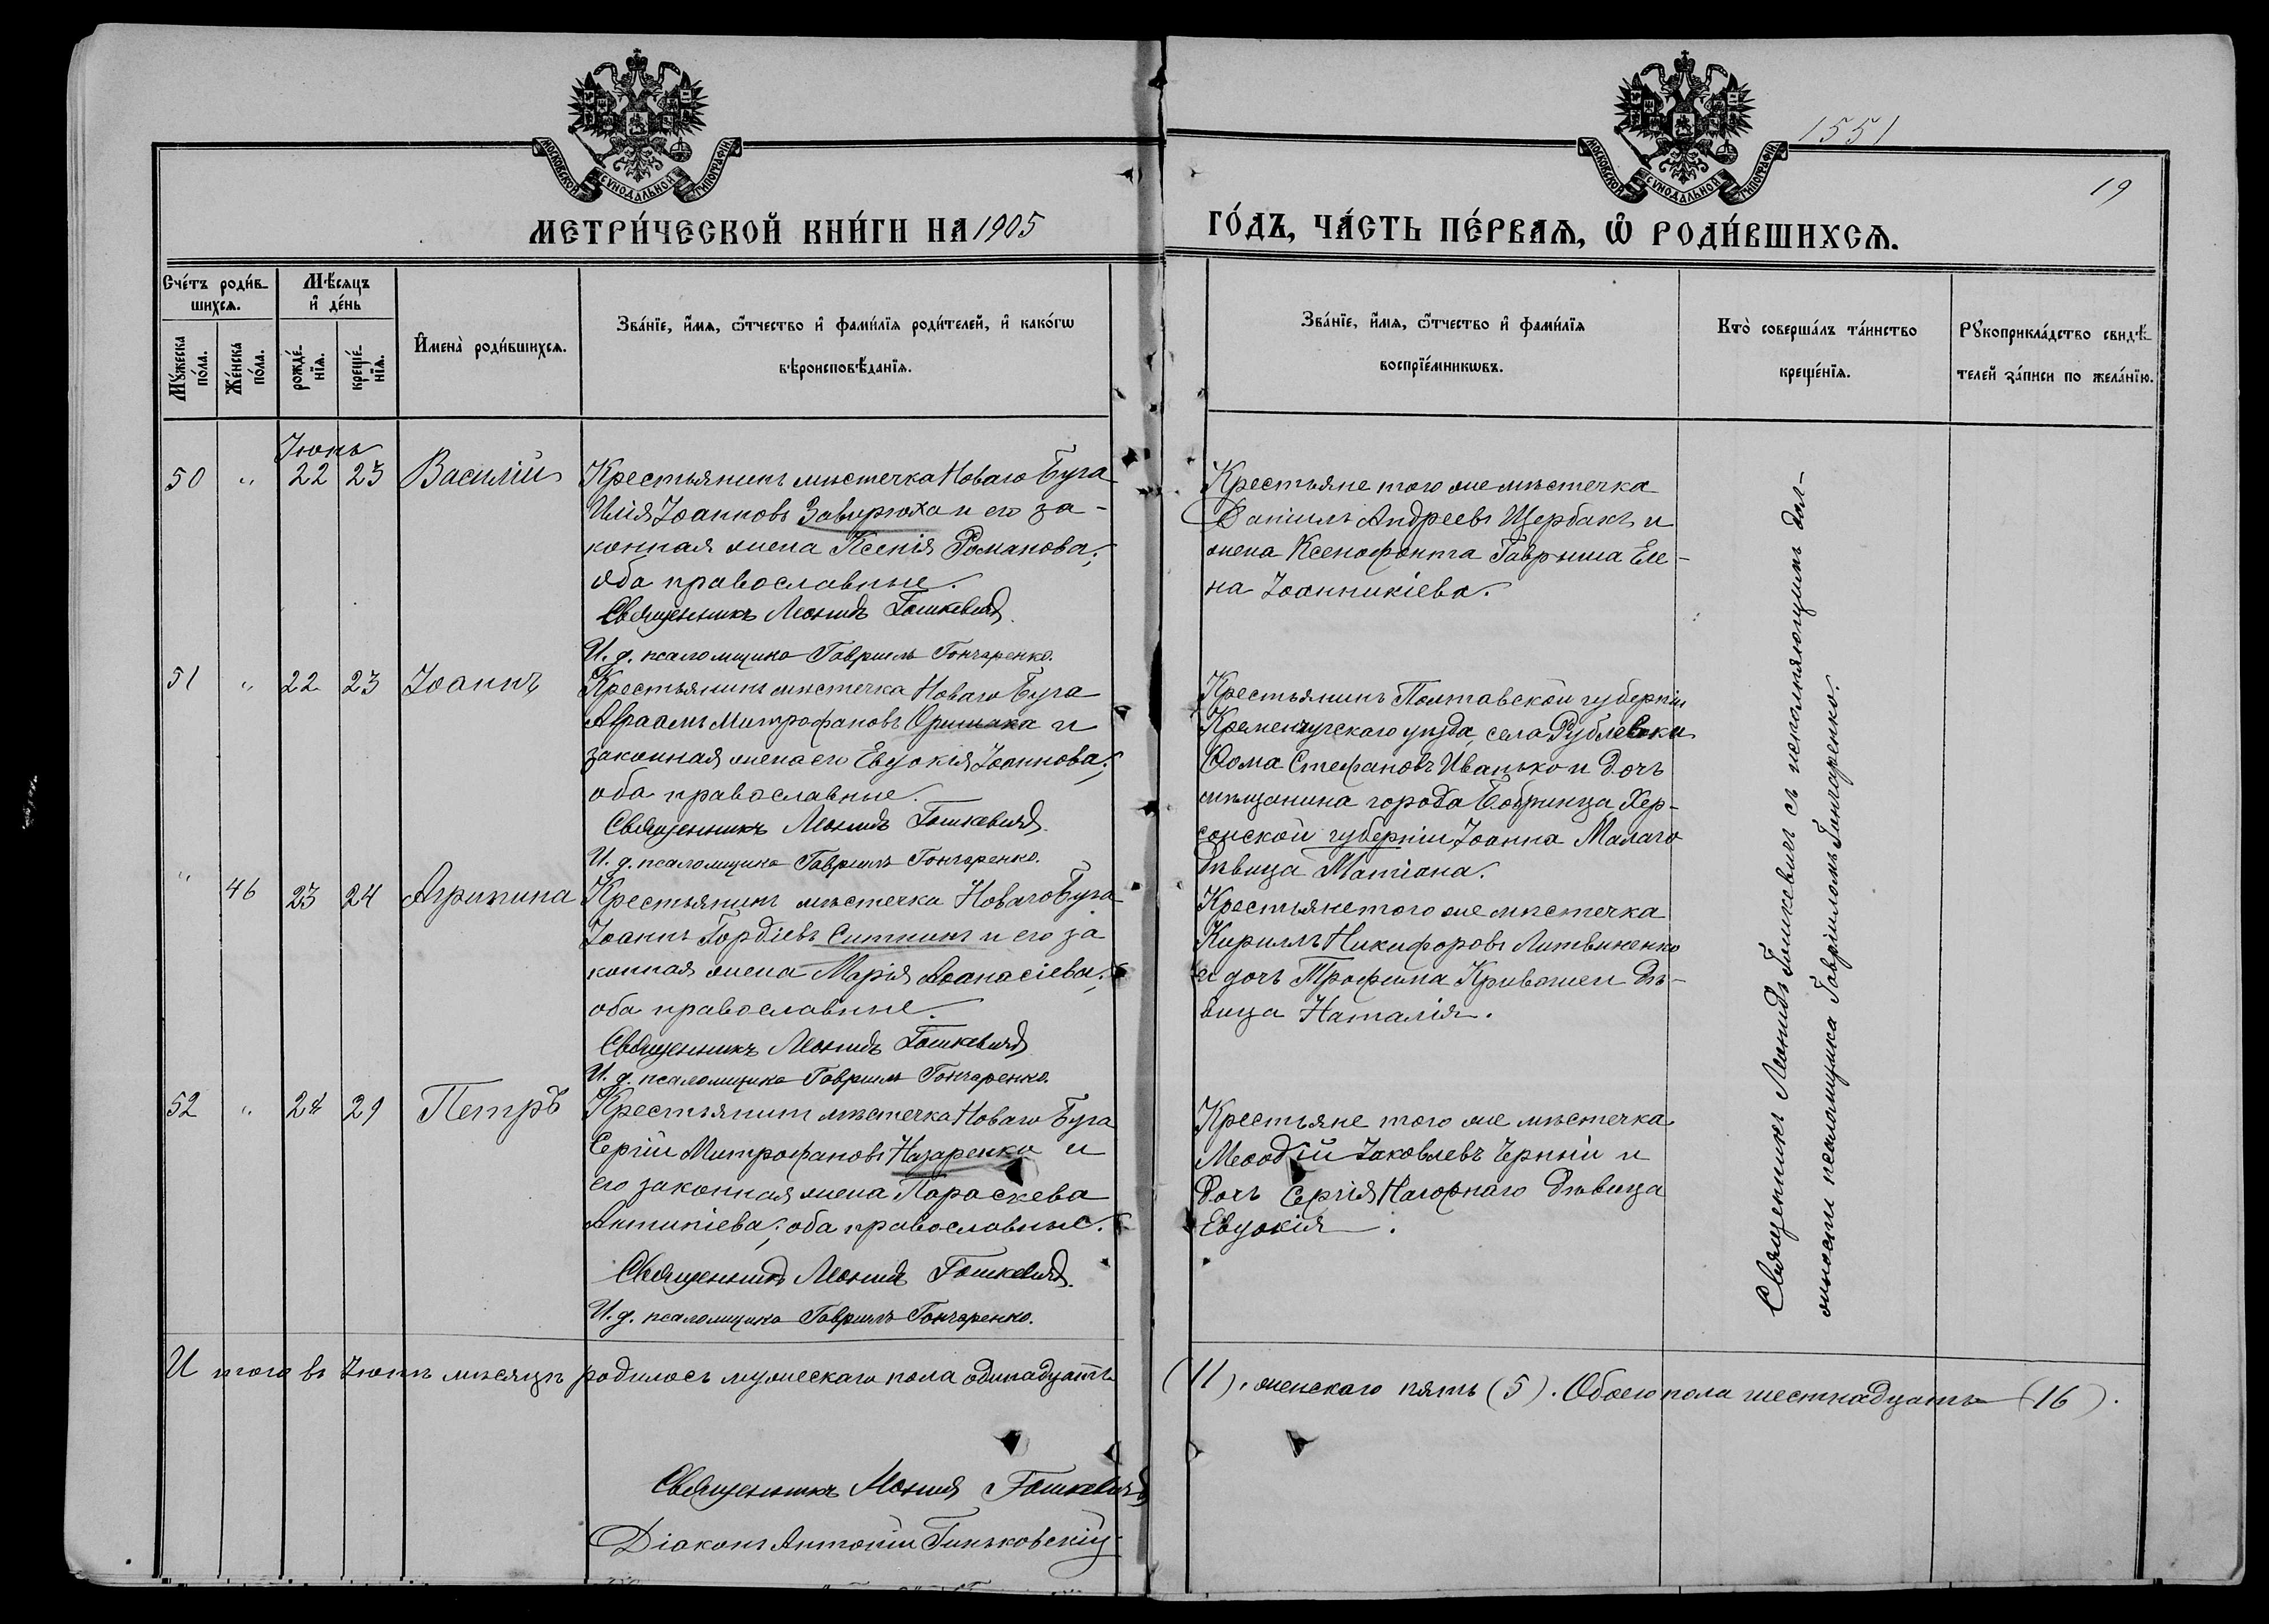 1551
19
МОСКОВСКОЙ СѴНОДАЛЬНОЙ ТИПОГРАФІИ
МОСКОВСКОЙ СѴНОДАЛЬНОЙ ТИПОГРАФІИ
МЕТРИ́ЧЕСКОЙ КНИ́ГИ НА 1905
ГО́ДЪ, ЧА́СТЬ ПЕ́РВАѦ, Ѽ РОДИ́ВШИХСѦ.
Сче́тъ роди́в-
шихсѧ.
Мѣ́сѧцъ
и҆ де́нь
Мꙋ́жеска
по́ла.
Же́нска
по́ла.
рожде́-
нїѧ.
креще́-
нїѧ.
И҆мена̀ роди́вшихсѧ.
Зва́нїе, и҆́мѧ, ѻ҆́тчество и҆ фами́лїѧ роди́телей, и҆ како́гѡ
вѣроисповѣ́данїѧ.
Зва́нїе, и҆́мѧ, ѻ҆́тчество и҆ фами́лїѧ
воспрїе́мникѡвъ.
Кто̀ соверша́лъ та́инство
креще́нїѧ.
Рꙋкоприкла́дство свидѣ́-
телей за́писи по жела́нїю.
Іюнь
50 " 22 23 Василій
Крестьянинъ мѣстечка Новаго Буга
Илія Іоанновъ Завирюха и его за-
конная жена Ксенія Романова;
оба православные.
Священникъ Леонидъ Гошкевичъ.
И. д. псаломщика Гавріилъ Гончаренко.
Крестьяне того же мѣстечка
Даніилъ Андреевъ Щербакъ и
жена Ксенофонта Гавриша Еле-
на Іоанникіева.
51 " 22 23 Іоаннъ
Крестьянинъ мѣстечка Новаго Буга
Авраамъ Митрофановъ Оришака и
законная жена его Евдокія Іоаннова;
оба православные.
Священникъ Леонидъ Гошкевичъ.
И. д. псаломщика Гавріилъ Гончаренко.
Крестьянинъ Полтавской губерніи
Кременчугскаго уѣзда, села Рублевки
Ѳома Стефановъ Иванько и дочь
мѣщанина города Бобринца Хер-
сонской губерніи Іоанна Малаго
дѣвица Матіона.
" 46 23 24 Агрипина
Крестьянинъ мѣстечка Новаго Буга
Іоаннъ Гордіевъ Ситникъ и его за
конная жена Марія Аѳанасіева;
оба православные.
Священникъ Леонидъ Гошкевичъ
И. д. псаломщика Гавріилъ Гончаренко.
Крестьяне того же мѣстечка
Кириллъ Никифоровъ Литвиненко
и дочь Трофима Кривошеи дѣ-
вица Наталія.
52 " 28 29 Петръ
Крестьянинъ мѣстечка Новаго Буга
Сергій Митрофановъ Назаренко и
его законная жена Параскева
Антипіева; оба православные.
Священникъ Леонидъ Гошкевичъ.
И. д. псаломщика Гавріилъ Гончаренко.
Крестьяне того же мѣстечка
Меѳодій Іаковлевъ Черный и
дочь Сергія Нагорнаго дѣвица
Евдокія.
Священникъ Леонидъ Гошкевичъ съ исполняющимъ дол-
жность псаломщика Гавріиломъ Гончаренко.
И того въ Іюнѣ мѣсяцѣ родилось мужескаго пола одинадцать (11), женскаго пять (5). Обоего пола шестнадцать (16).
Священникъ Леонид Гошкевичъ
Діаконъ Антоній Гиньковскій